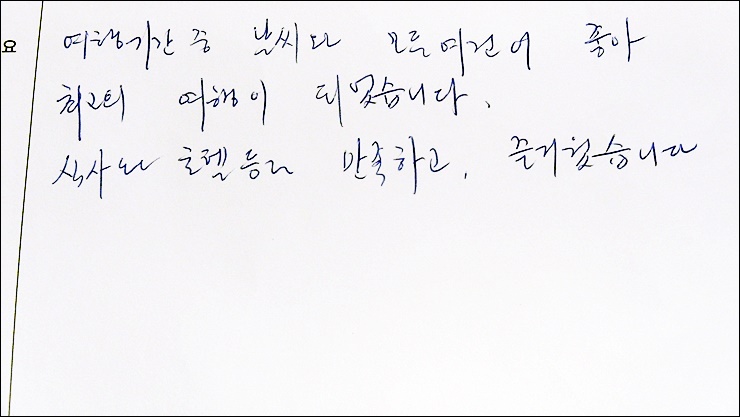 요
여행기간 중 날씨와 모든여건이 좋아
최고의 여행이 되었습니다.
식사와 호텔등도 만족하고, 즐거웠습니다